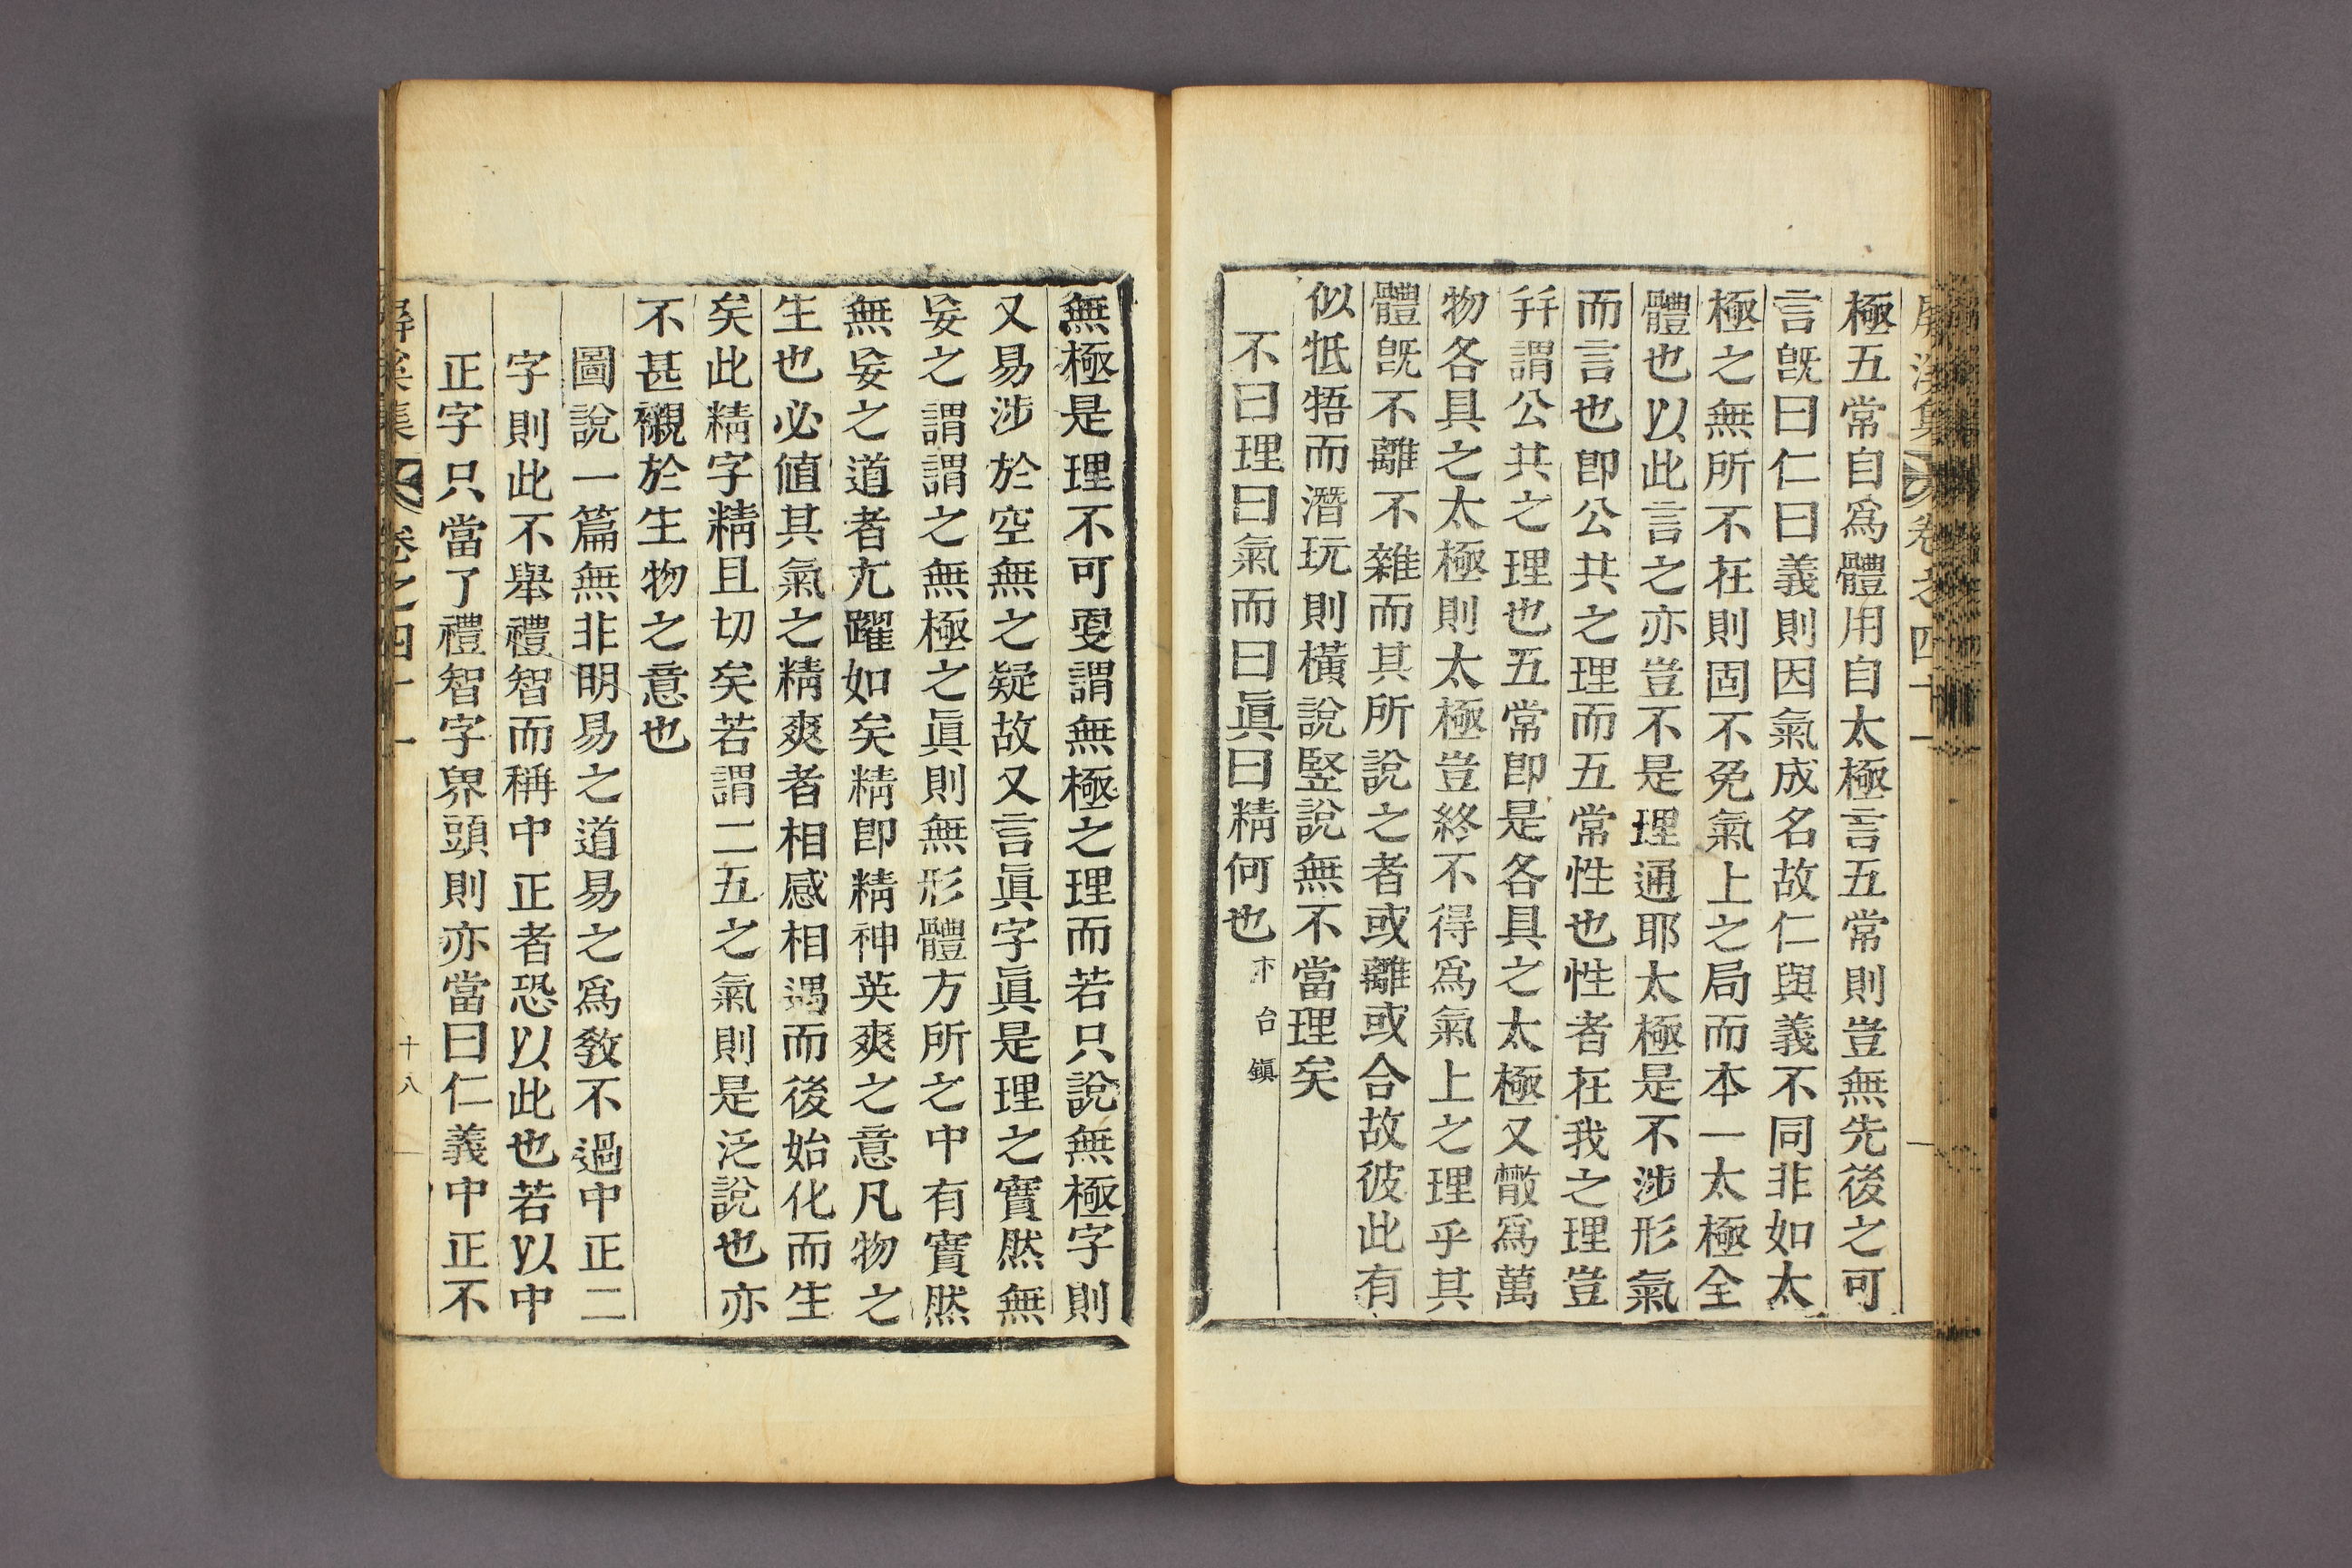 屏溪集 卷之四十一
極五常自爲體用自太極言五常則豈無先後之可
言旣曰仁曰義則因氣成名故仁與義不同非如太
極之無所不在則固不免氣上之局而本一太極全
體也以此言之亦豈不是理通耶太極是不涉形氣
而言也卽公共之理而五常性也性者在我之理豈
幷謂公共之理也五常卽是各具之太極又轍爲萬
物各具之太極則太極豈終不得爲氣上之理乎其
體旣不離不雜而其所說之者或離或合故彼此有
似牴牾而潛玩則橫說竪說無不當理矣
不曰理曰氣而曰眞曰精何也 台鎭
無極是理不可更謂無極之理而若只說無極字則
又易涉於空無之疑故又言眞字眞是理之實然無
妄之謂謂之無極之眞則無形體方所之中有實然
無妄之道者尤躍如矣精卽精神英爽之意凡物之
生也必値其氣之精爽者相感相遇而後始化而生
矣此精字精且切矣若謂二五之氣則是泛說也亦
不甚襯於生物之意也
圖說一篇無非明易之道易之爲敎不過中正二
字則此不擧禮智而稱中正者恐以此也若以中
正字只當了禮智字界頭則亦當曰仁義中正不
屏溪集 卷之四十一 十八